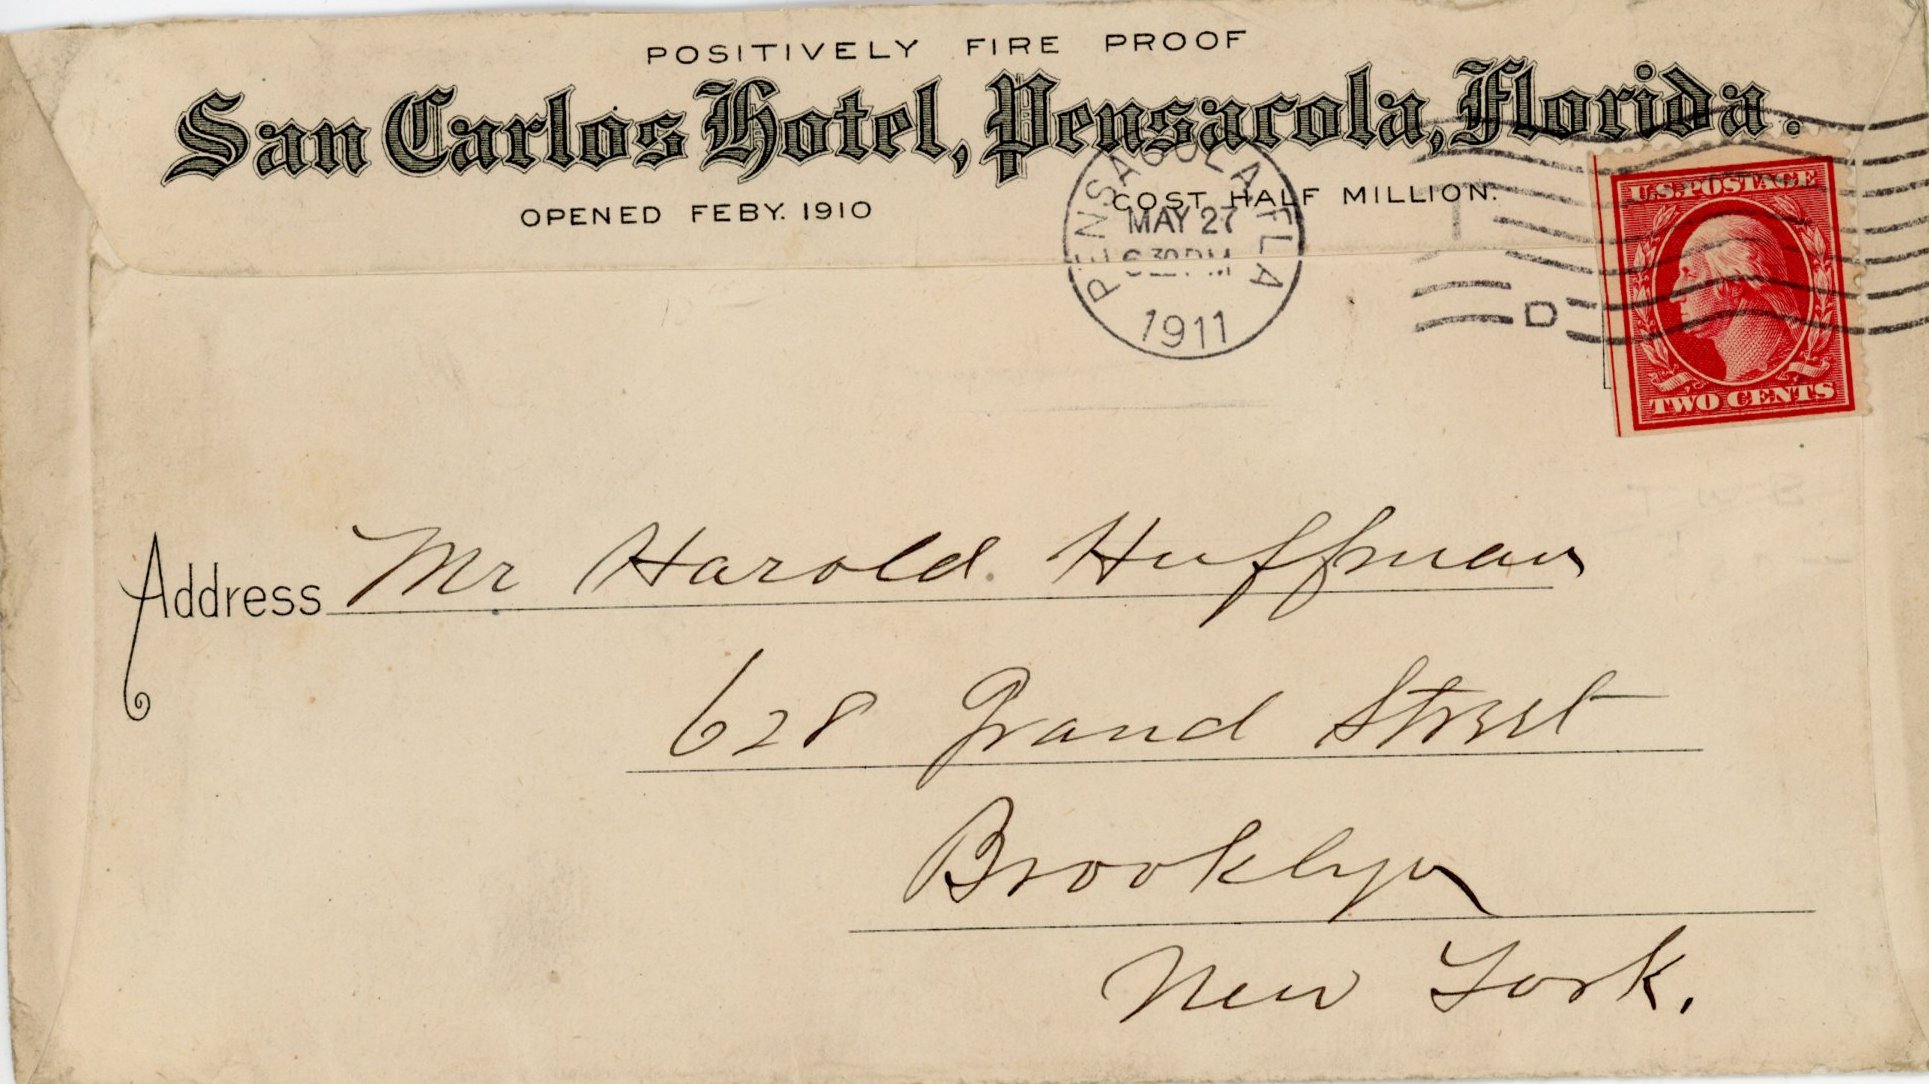 POSITIVELY FIRE PROOF
San Carlos Hotel, Pensacola, Florida.
OPENED FEBY. 1910 COST HALF MILLION.
PENSACOLA FLA
MAY 27
6 30 PM
1911
D
U.S. POSTAGE
TWO CENTS
Address Mr Harold Huffman
628 Grand Street
Brooklyn
New York.